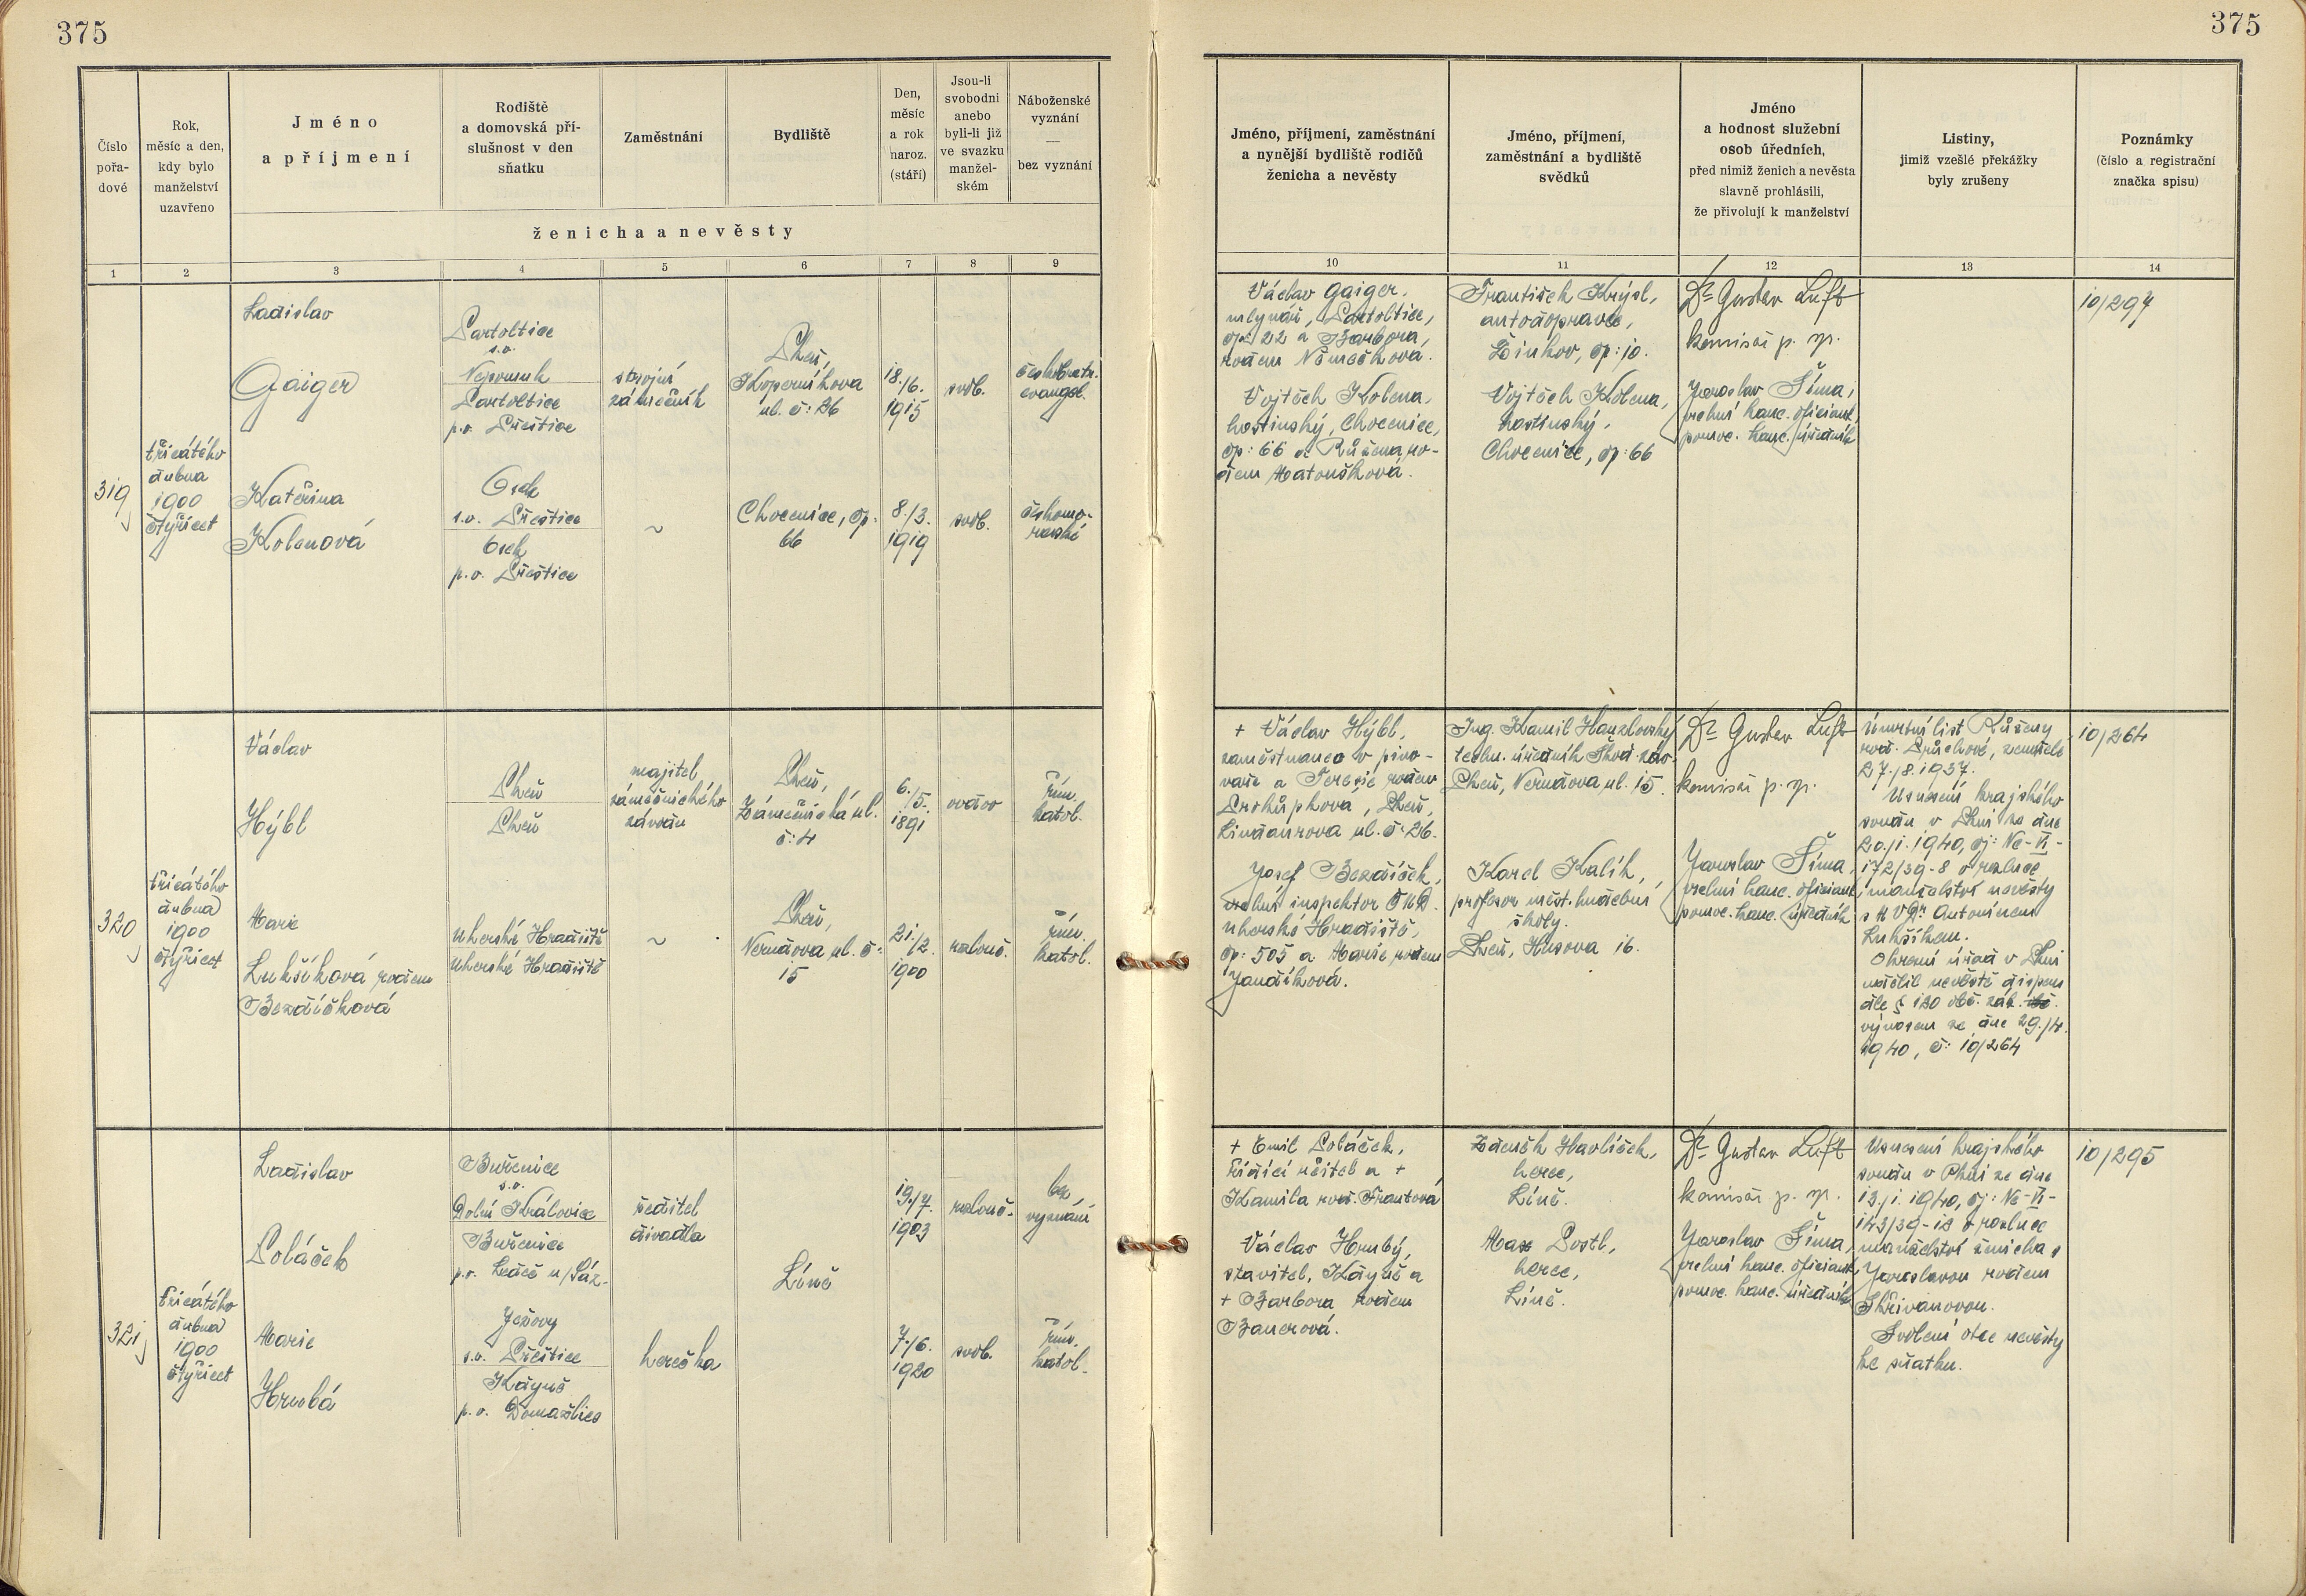 375
375
Číslo
pořa-
dové
Rok,
měsíc a den,
kdy bylo
manželství
uzavřeno
Jméno
a příjmení
Rodiště
a domovská pří-
slušnost v den
sňatku
Zaměstnání
Bydliště
Den,
měsíc
a rok
naroz.
(stáří)
Jsou-li
svobodni
anebo
byli-li již
ve svazku
manžel-
ském
Náboženské
vyznání
—
bez vyznání
ženicha a nevěsty
1 2 3 4 5 6 7 8 9
Jméno, příjmení, zaměstnání
a nynější bydliště rodičů
ženicha a nevěsty
Jméno, příjmení,
zaměstnání a bydliště
svědků
Jméno
a hodnost služební
osob úředních,
před nimiž ženich a nevěsta
slavně prohlásili,
že přivolují k manželství
Listiny,
jimiž vzešlé překážky
byly zrušeny
Poznámky
(číslo a registrační
značka spisu)
10 11 12 13 14
319
třicátého
dubna
1900
čtyřicet
Ladislav
Gaiger
Partoltice
s.o.
Nepomuk
Partoltice
p.o. Přeštice
strojní
zámečník
Plzeň,
Koperníkova
ul. č: 26
18./6.
1915
svob.
českobratr.
evangel.
Kateřina
Kolenová
Osek
s.o. Přeštice
Osek
p.o. Přeštice
~
Chocenice, čp:
66
8./3.
1919
svob.
českomo-
ravské
Václav Gaiger,
mlynář, Partoltice,
čp: 22 a Barbora,
rodem Němečkova.
Vojtěch Kolena,
hostinský, Chocenice,
čp: 66 a Růžena, ro-
dem Matoušková.
František Krýsl,
autodopravce,
Žinkov, čp: 10.
Vojtěch Kolena,
hostinský,
Chocenice, čp: 66
Dr Gustav Luft
komisař p. sp.
Jaroslav Šíma,
vrchní kanc. oficiant
pomoc. kanc. úředník
10/297
320
třicátého
dubna
1900
čtyřicet
Václav
Hýbl
Plzeň
Plzeň
majitel
zámečnického
závodu
Plzeň,
Zámečnická ul.
č: 4
6.
/5.
1891
vdov
řím.
katol.
Marie
Lukšíková, rodem
Bezdíčková
Uherské Hradiště
Uherské Hradiště
~
Plzeň,
Nerudova ul. č:
15
21.
/2.
1900
rozlouč.
řím.
katol.
+ Václav Hýbl,
zaměstnanec v pivo-
vaře a Terezie rodem
Proküpkova, Plzeň,
Lindaurova ul. č: 26.
Josef Bezdíček,
vrchní inspektor ČMD.
Uherské Hradiště,
čp: 505 a Marie rodem
Jandíková.
Ing. Kamil Hanzlovský
techn. úředník Škod. záv.
Plzeň, Nerudova ul. 15.
Karel Kalík,
profesor měst. hudební
školy.
Plzeň, Husova 16.
Dr Gustav Luft
komisař p. sp.
Jaroslav Šíma,
vrchní kanc. oficiant
pomoc. kanc. úředník
Úmrtní list Růženy
rod. Průchové, zemřelé
27./8.1937.
Usnesení krajského
soudu v Plzni ze dne
20./1.1940, čj: Nc-VI-
172/39-8 o rozluce
manželství nevěsty
s MUDr. Antonínem
Lukšíkem.
Okresní úřad v Plzni
udělil nevěstě dispens
dle § 120 obč. zák.
výnosem ze dne 29./4.
1940, č: 10/264
10/264
321
třicátého
dubna
1900
čtyřicet
Ladislav
Poláček
Buřenice
s.o.
Dolní Kralovice
Buřenice
p.o. Ledeč n/Sáz.
ředitel
divadla
Líně
19./7.
1903
rozlouč.
bez
vyznání
Marie
Hrubá
Ježovy
s.o. Přeštice
Kdyně
p.o. Domažlice
herečka
7./6.
1920
svob.
řím.
katol.
+ Emil Poláček,
řídící učitel a +
Kamila rod. Frantová
Václav Hrubý,
stavitel, Kdyně a
+ Barbora rodem
Bauerová.
Zdeněk Havlíček,
herec,
Líně.
Max Postl,
herec,
Líně.
Dr Gustav Luft
komisař p. sp.
Jaroslav Šíma,
vrchní kanc. oficiant
pomoc. kanc. úředník
Usnesení krajského
soudu v Plzni ze dne
13./1.1940, čj: Nc-VI-
143/39-12 o rozluce
manželství ženicha s
Jaroslavou rodem
Skřivanovou.
Svolení otce nevěsty
ke sňatku.
10/295